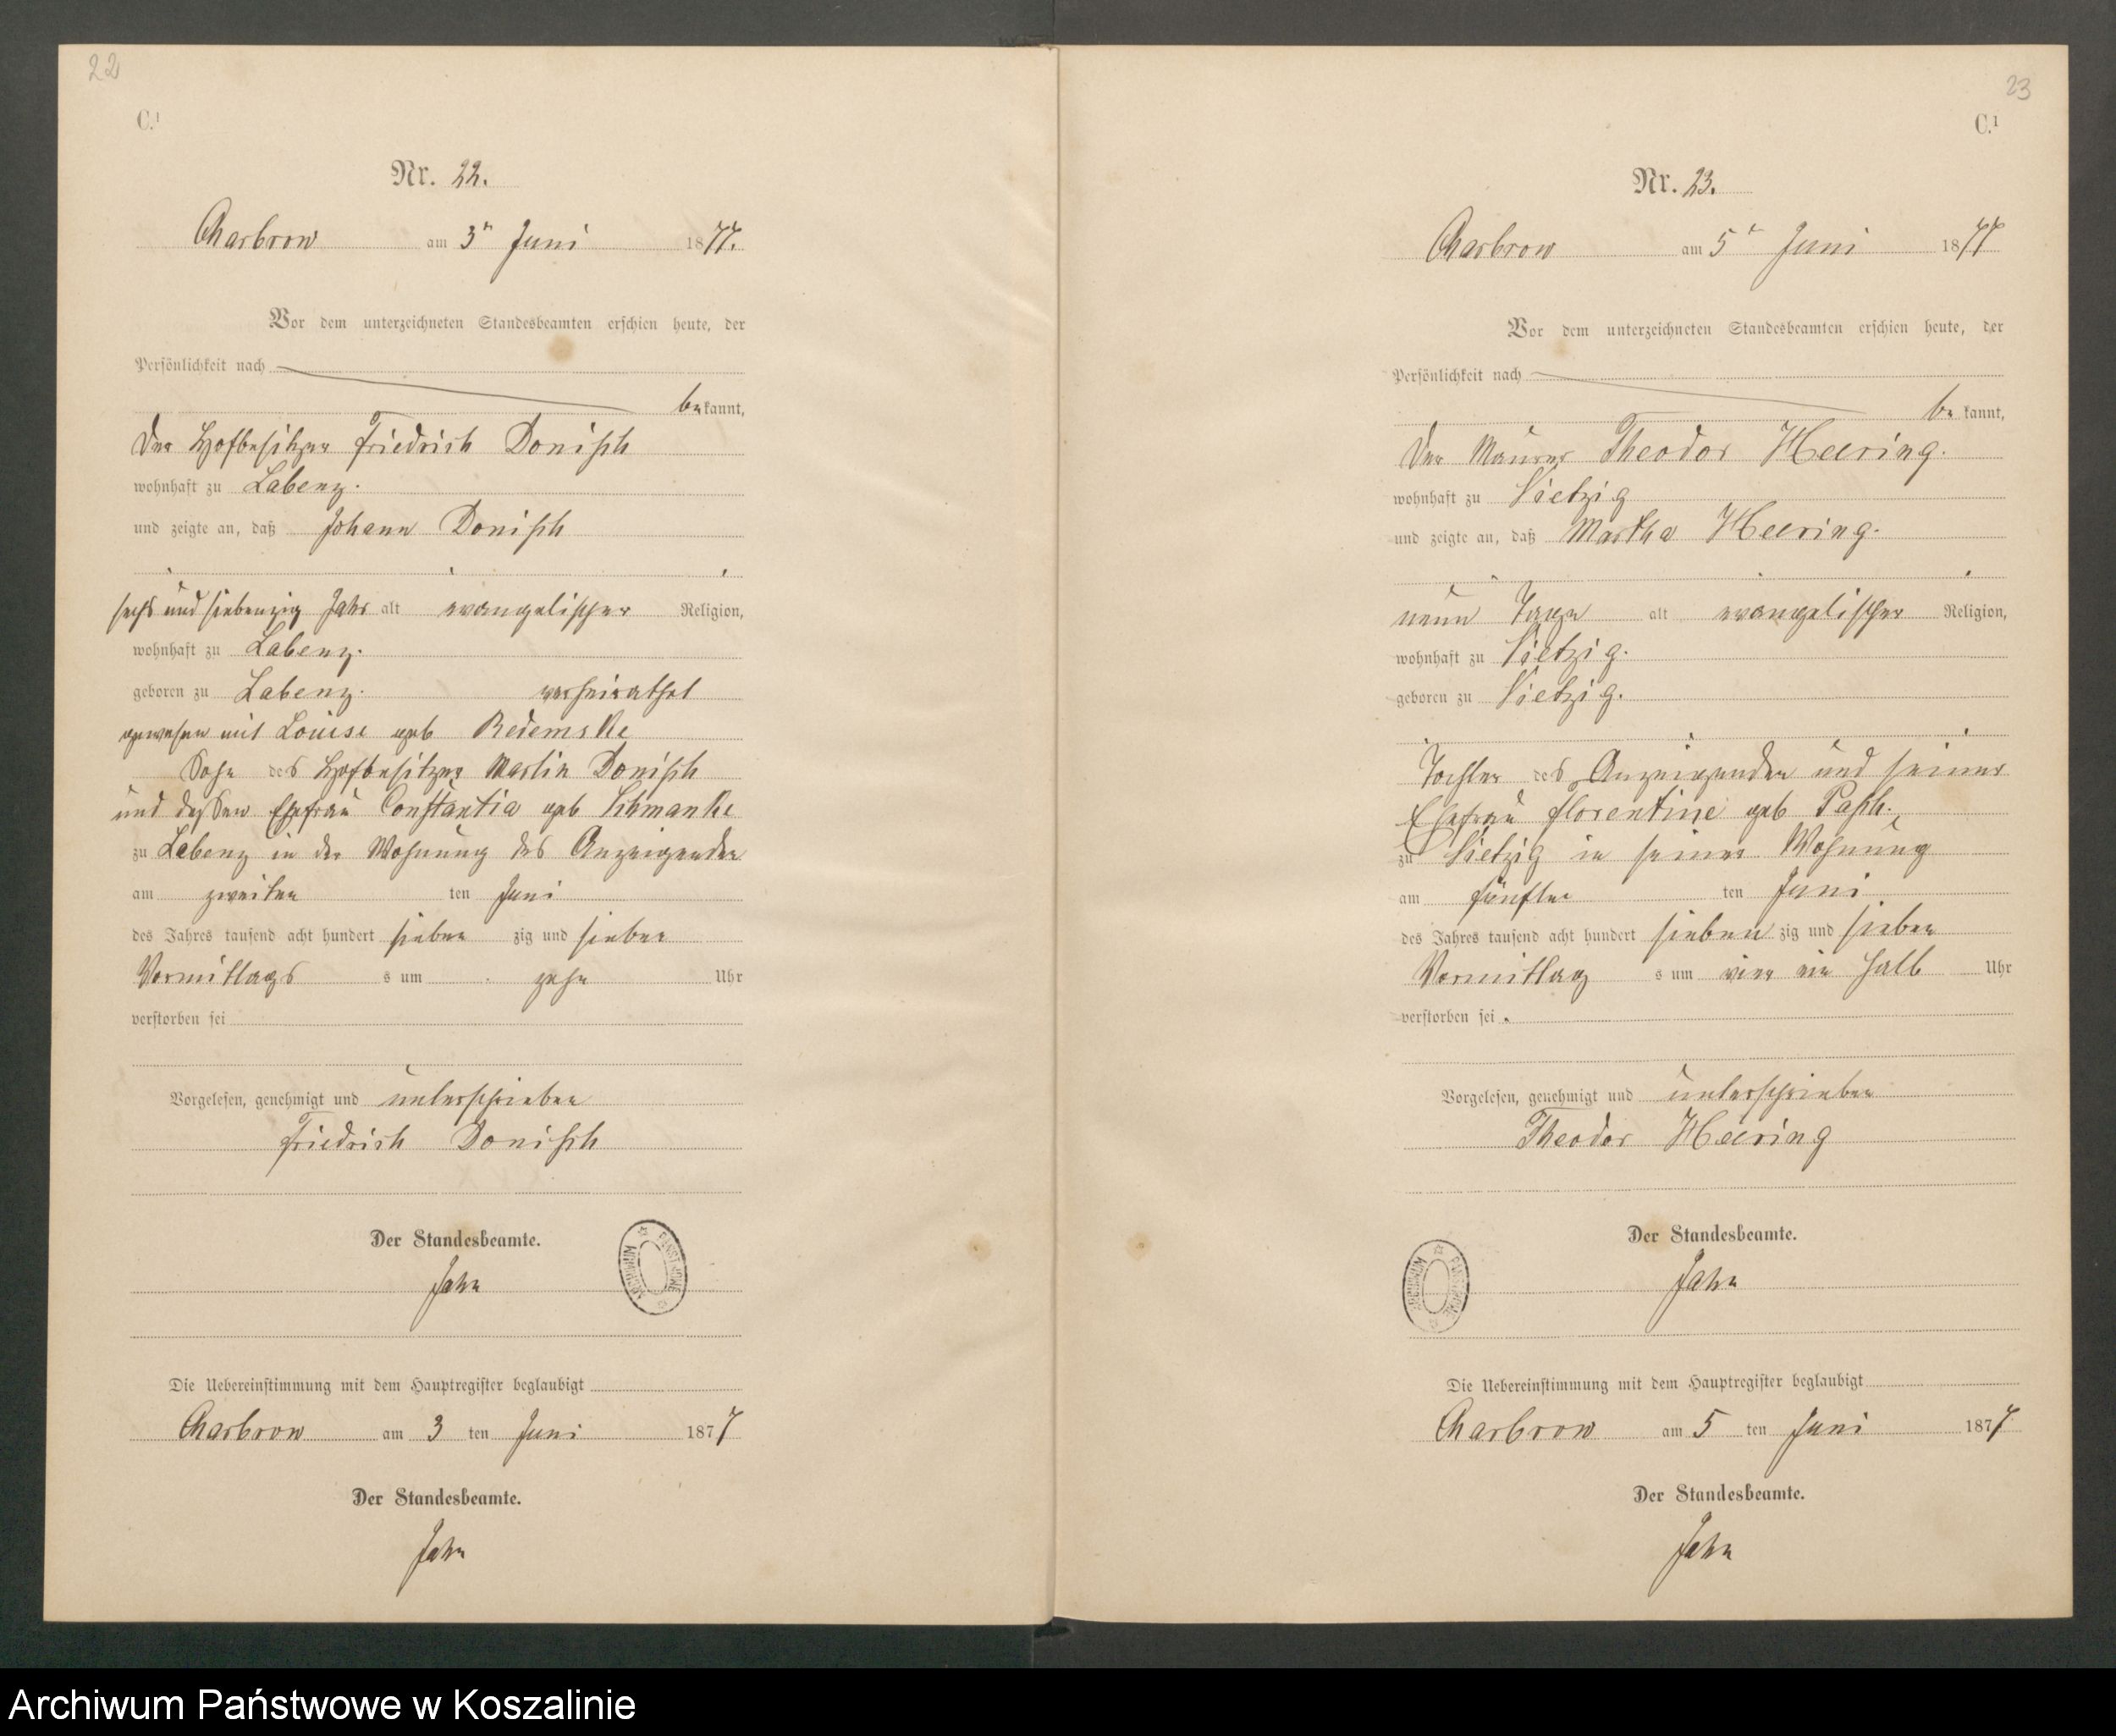 22
C.¹
Nr. 22.
Charbrow am 3ⁿ Juni 1877.
Vor dem unterzeichneten Standesbeamten erschien heute, der
Persönlichkeit nach
bekannt,
der Hofbesitzer Friedrich Donisch
wohnhaft zu Labenz.
und zeigte an, daß Johann Donisch
sechs und siebenzig Jahr alt evangelischer Religion,
wohnhaft zu Labenz.
geboren zu Labenz. verheirathet
gewesen mit Louise geb Redemske
Sohn des Hofbesitzer Martin Donisch
und dessen Ehefrau Constantia geb Schmanke
zu Labenz in der Wohnung des Anzeigenden
am zweiten ten Juni
des Jahres tausend acht hundert sieben zig und sieben
Vormittags s um zehn Uhr
verstorben sei
Vorgelesen, genehmigt und unterschrieben
Friedrich Donisch
Der Standesbeamte.
Jahn
ARCHIWUM PAŃSTWOWE
Die Uebereinstimmung mit dem Hauptregister beglaubigt
Charbrow am 3 ten Juni 1877
Der Standesbeamte.
Jahn
23
C.¹
Nr. 23.
Charbrow am 5 Juni 1877
Vor dem unterzeichneten Standesbeamten erschien heute, der
Persönlichkeit nach
bekannt,
der Maurer Theodor Heering.
wohnhaft zu Vietzig
und zeigte an, daß Martha Heering.
neun Tage alt evangelischer Religion,
wohnhaft zu Vietzig.
geboren zu Vietzig.
Tochter des Anzeigenden und seiner
Ehefrau Florentine geb Pasch.
zu Vietzig in seiner Wohnung
am fünften ten Juni
des Jahres tausend acht hundert sieben zig und sieben
Vormittag s um vier ein halb Uhr
verstorben sei.
Vorgelesen, genehmigt und unterschrieben
Theodor Heering
Der Standesbeamte.
Jahn
ARCHIWUM PAŃSTWOWE
Die Uebereinstimmung mit dem Hauptregister beglaubigt
Charbrow am 5 ten Juni 1877
Der Standesbeamte.
Jahn
Archiwum Państwowe w Koszalinie